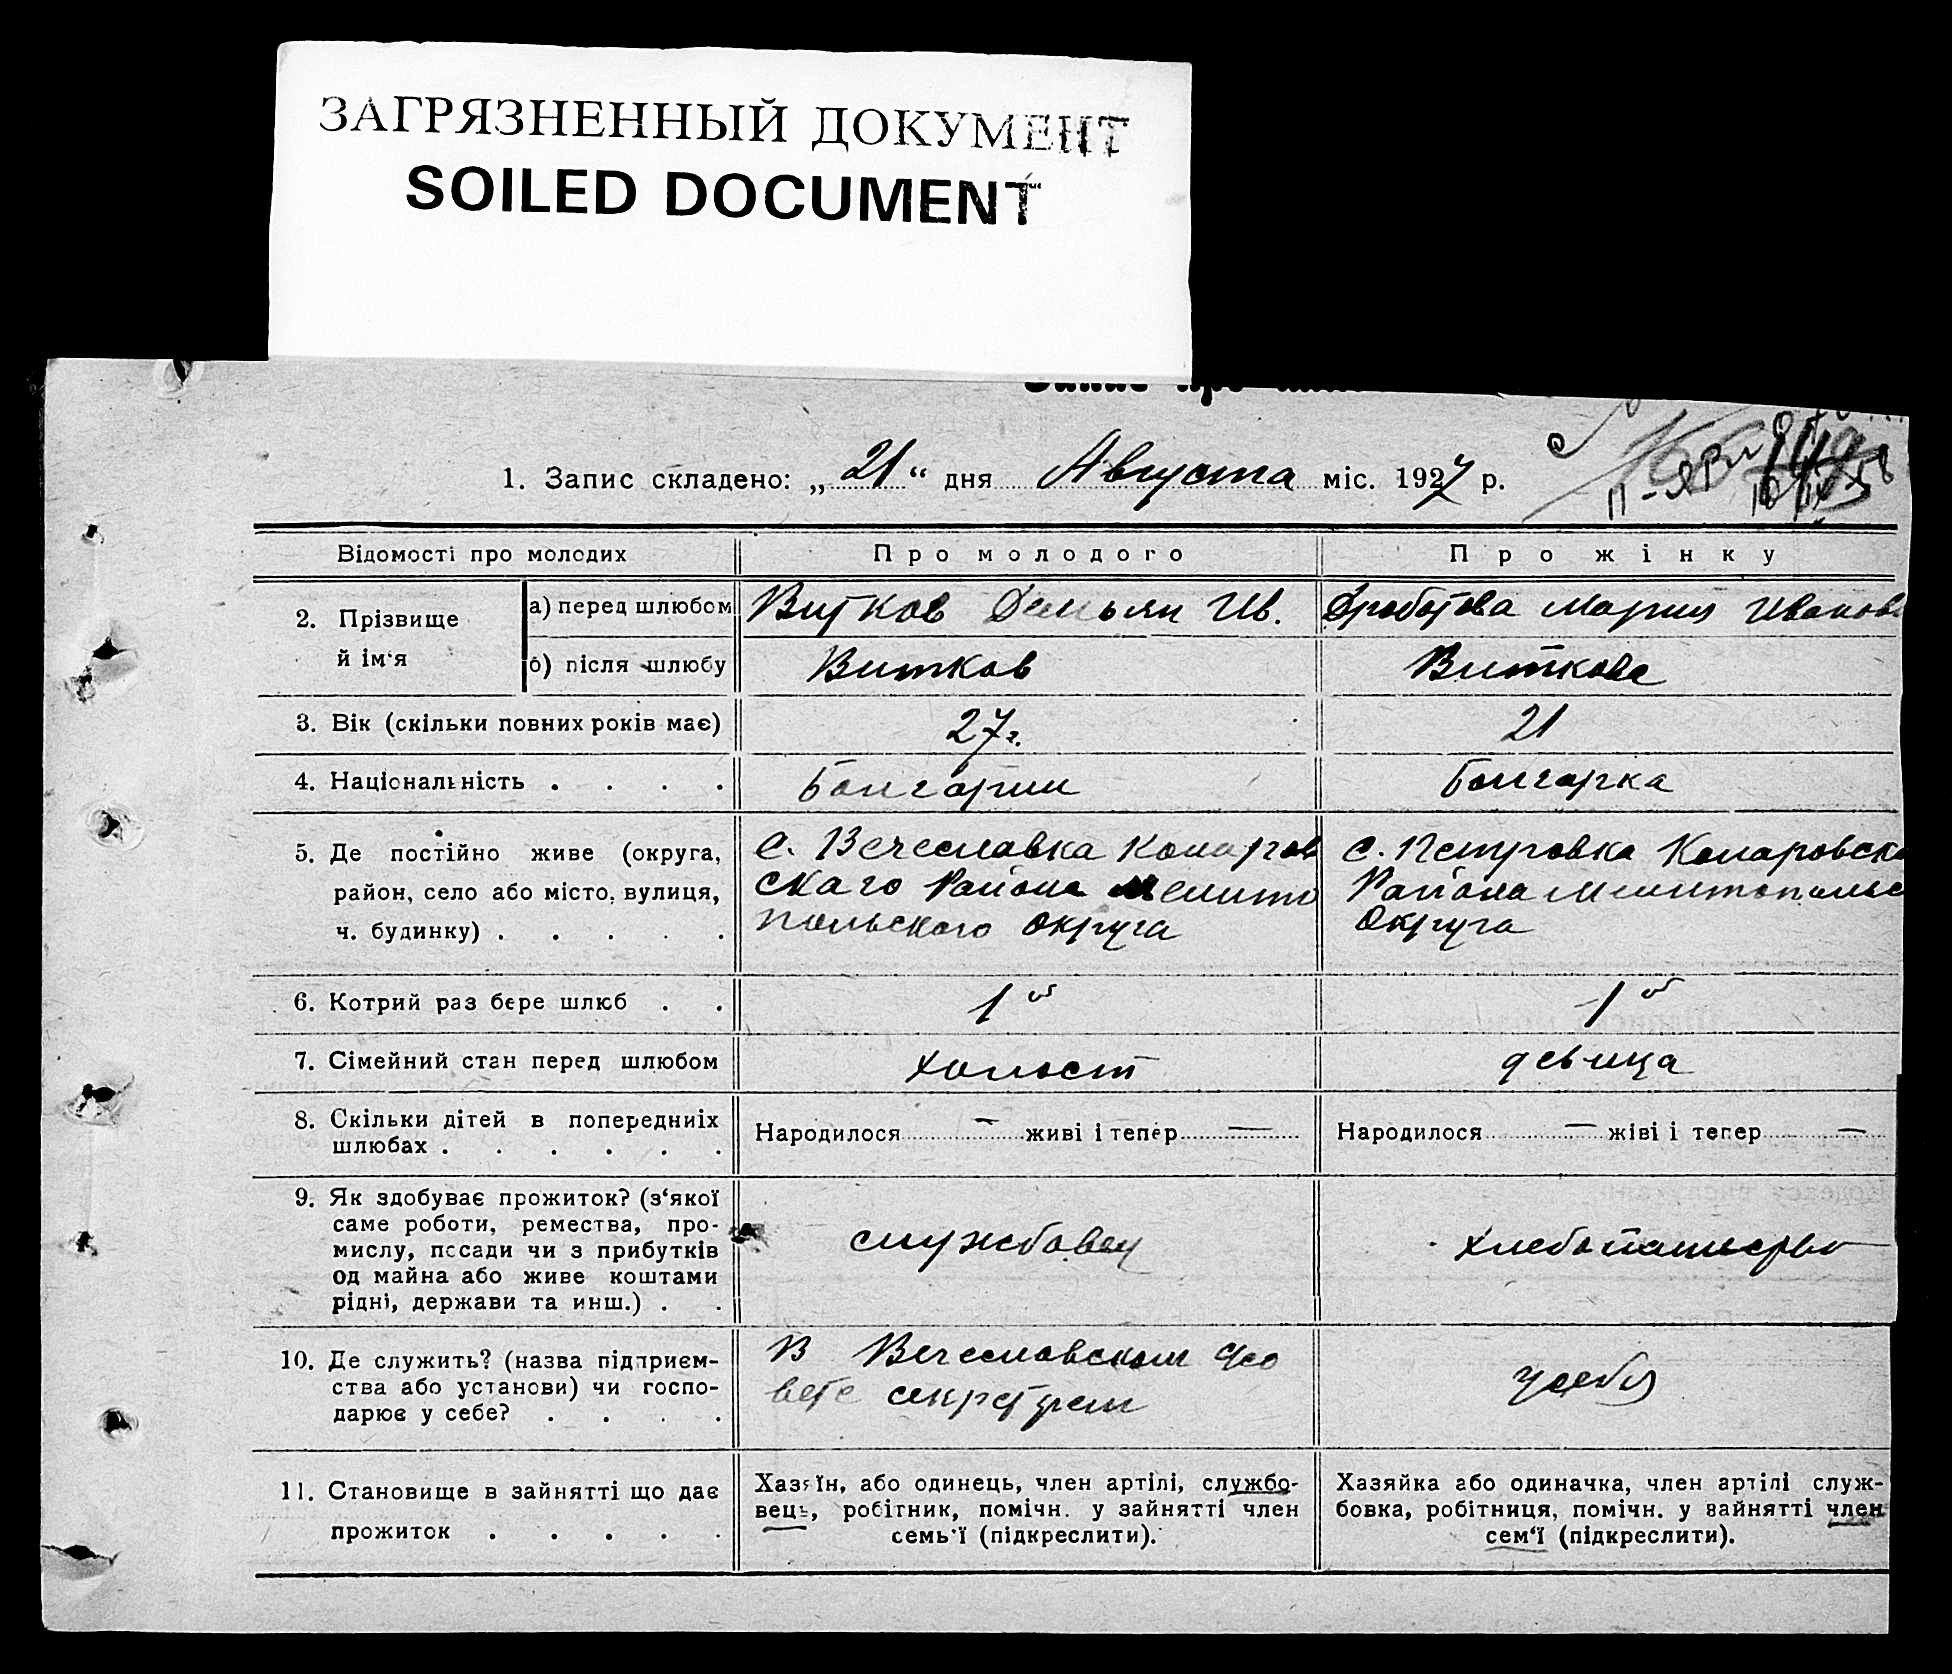 ЗАГРЯЗНЕННЫЙ ДОКУМЕНТ
SOILED DOCUMENT
1. Запис складено: „21“ дня Августа міс. 1927 р.
Відомості про молодих
Про молодого
Про жінку
2. Прізвище й ім'я
а) перед шлюбом
Витков Демьян Ив.
Дработова Мария Иванов
б) після шлюбу
Витков
Виткова
3. Вік (скільки повних років має)
27 г.
21
4. Національність . . . .
Болгарин
Болгарка
5. Де постійно живе (округа,
район, село або місто, вулиця,
ч. будинку) . . . . .
с. Вячеславка Комаров
ского Района Мелито
польского округа
с. Петровка Комаровско
Района Мелитопольс
округа
6. Котрий раз бере шлюб . .
1й
1й
7. Сімейний стан перед шлюбом
холост
девица
8. Скільки дітей в попередниіх
шлюбах . . . . . .
Народилося — живі і тепер —
Народилося — жіві і тепер —
9. Як здобуває прожиток? (з'якої
саме роботи, ремества, про-
мислу, посади чи з прибутків
од майна або живе коштами
рідні, держави та инш.) . .
службовец
хлебопашество
10. Де служить? (назва підприєм-
ства або установи) чи госпо-
дарює у себе? . . . .
В Вечеславском
вете секретрем
у себя
11. Становище в зайнятті що дає
прожиток . . . . .
Хазяїн, або одинець, член артілі, службо-
вець, робітник, помічн. у зайнятті член
семь'ї (підкреслити).
Хазяйка або одиначка, член артілі служ-
бовка, робітниця, помічн. у зайнятті член
сем'ї (підкреслити).